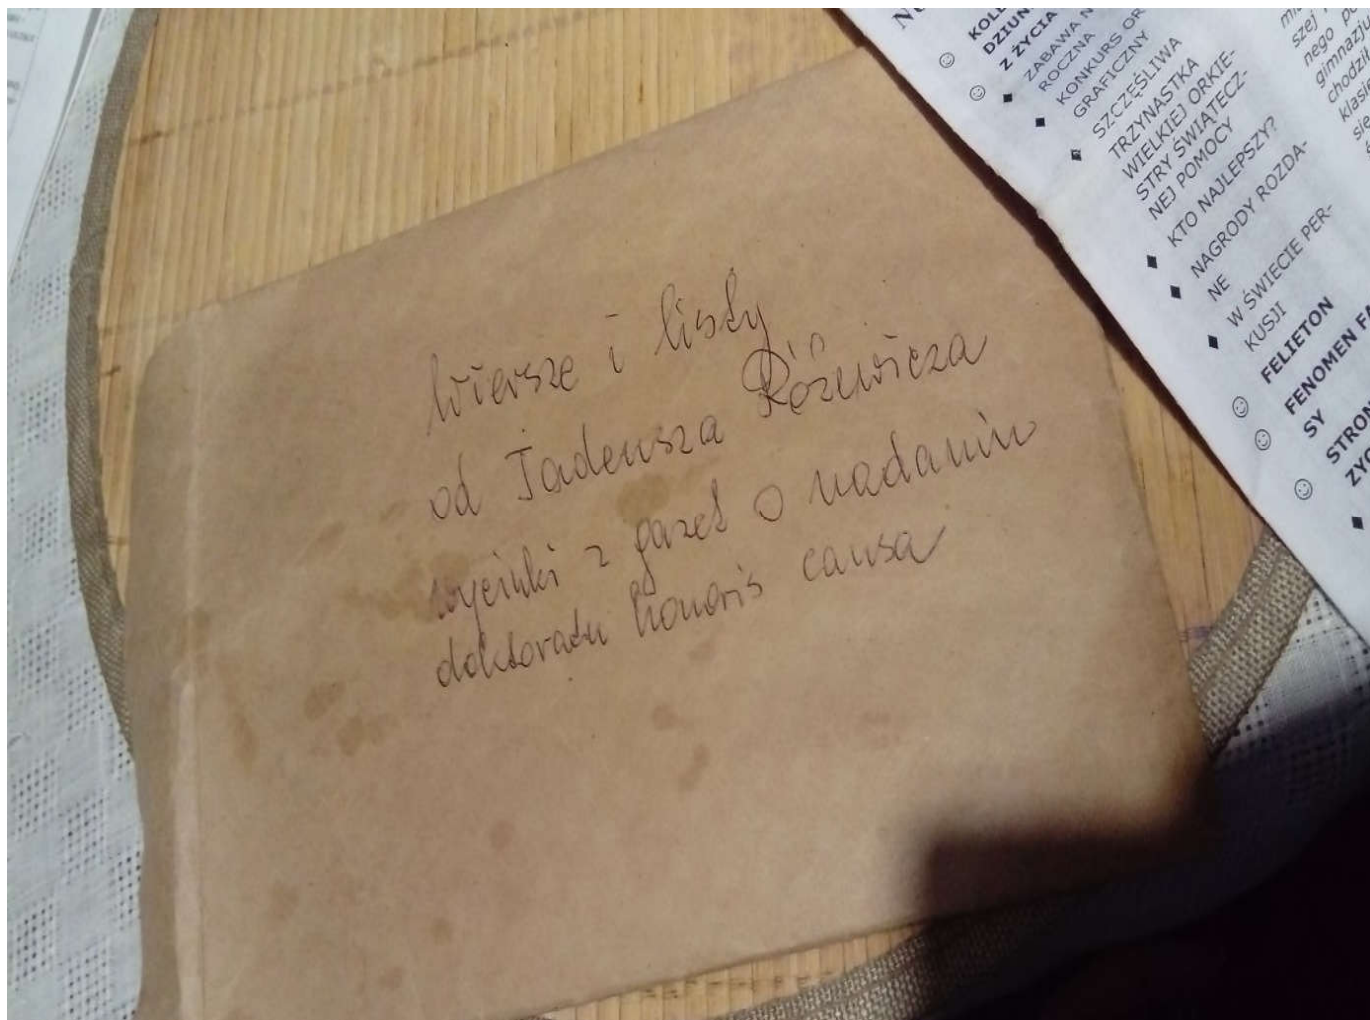 Wiersze i listy
od Tadeusza Różewicza
wycinki z gazet o nadaniu
doktoratu honoris causa
DZIUN
Z ŻYCIA
ZABAWA N
ROCZNA
KONKURS OR
GRAFICZNY
SZCZĘŚLIWA
TRZYNASTKA
WIELKIEJ ORKIE-
STRY ŚWIĄTECZ-
NEJ POMOCY
KTO NAJLEPSZY?
NAGRODY ROZDA-
NE
W ŚWIECIE PER-
KUSJI
FELIETON
FENOMEN FA
SY
STRON
szej
nego
gimnazju
chodził
klasie